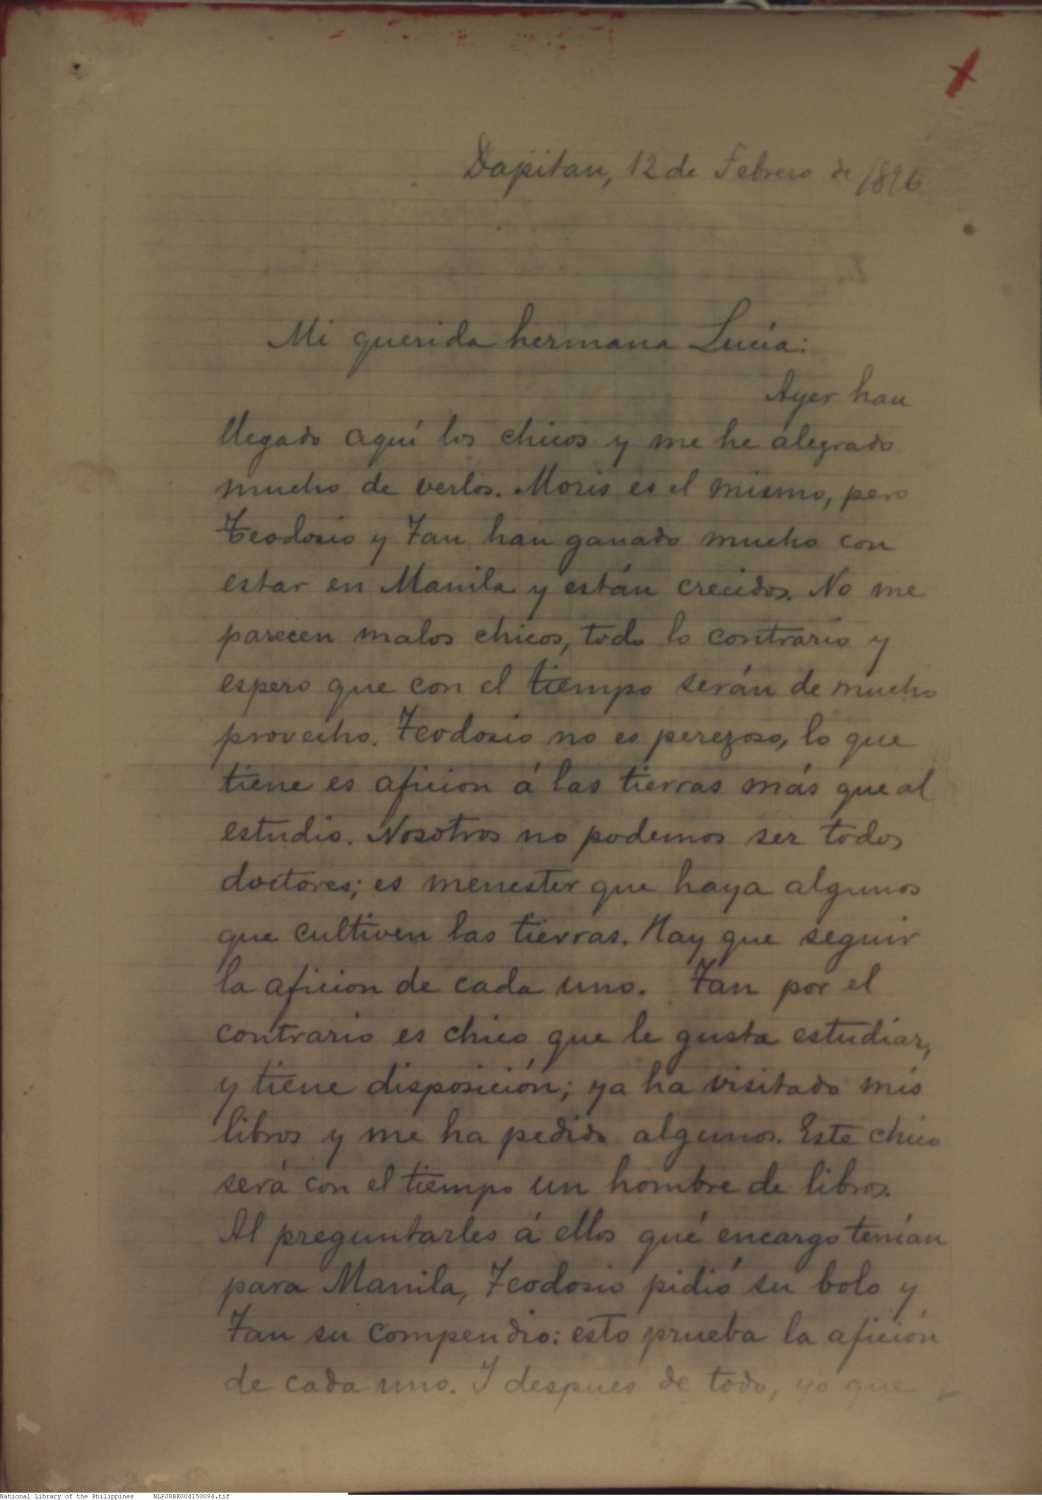 Dapitan, 12 de Febrero de 1896
Mi querida hermana Lucía:
Ayer han
llegado aquí los chicos y me he alegrado
mucho de verlos. Moris es el mismo, pero
Teodosio y Tan han ganado mucho con
estar en Manila y están crecidos. No me
parecen malos chicos, todo lo contrario y
espero que con el tiempo serán de mucho
provecho. Teodosio no es perezoso, lo que
tiene es aficion á las tierras más que al
estudio. Nosotros no podemos ser todos
doctores; es menester que haya algunos
que cultiven las tierras. Hay que seguir
la aficion de cada uno. Tan por el
contrario es chico que le gusta estudiar,
y tiene disposición; ya ha visitado mis
libros y me ha pedido algunos. Este chico
será con el tiempo un hombre de libros.
Al preguntarles á ellos qué encargo tenían
para Manila, Teodosio pidió su bolo y
Tan su compendio: esto prueba la afición
de cada uno. Y despues de todo, yo que
National Library of the Philippines NLPJRBK004150094.tif